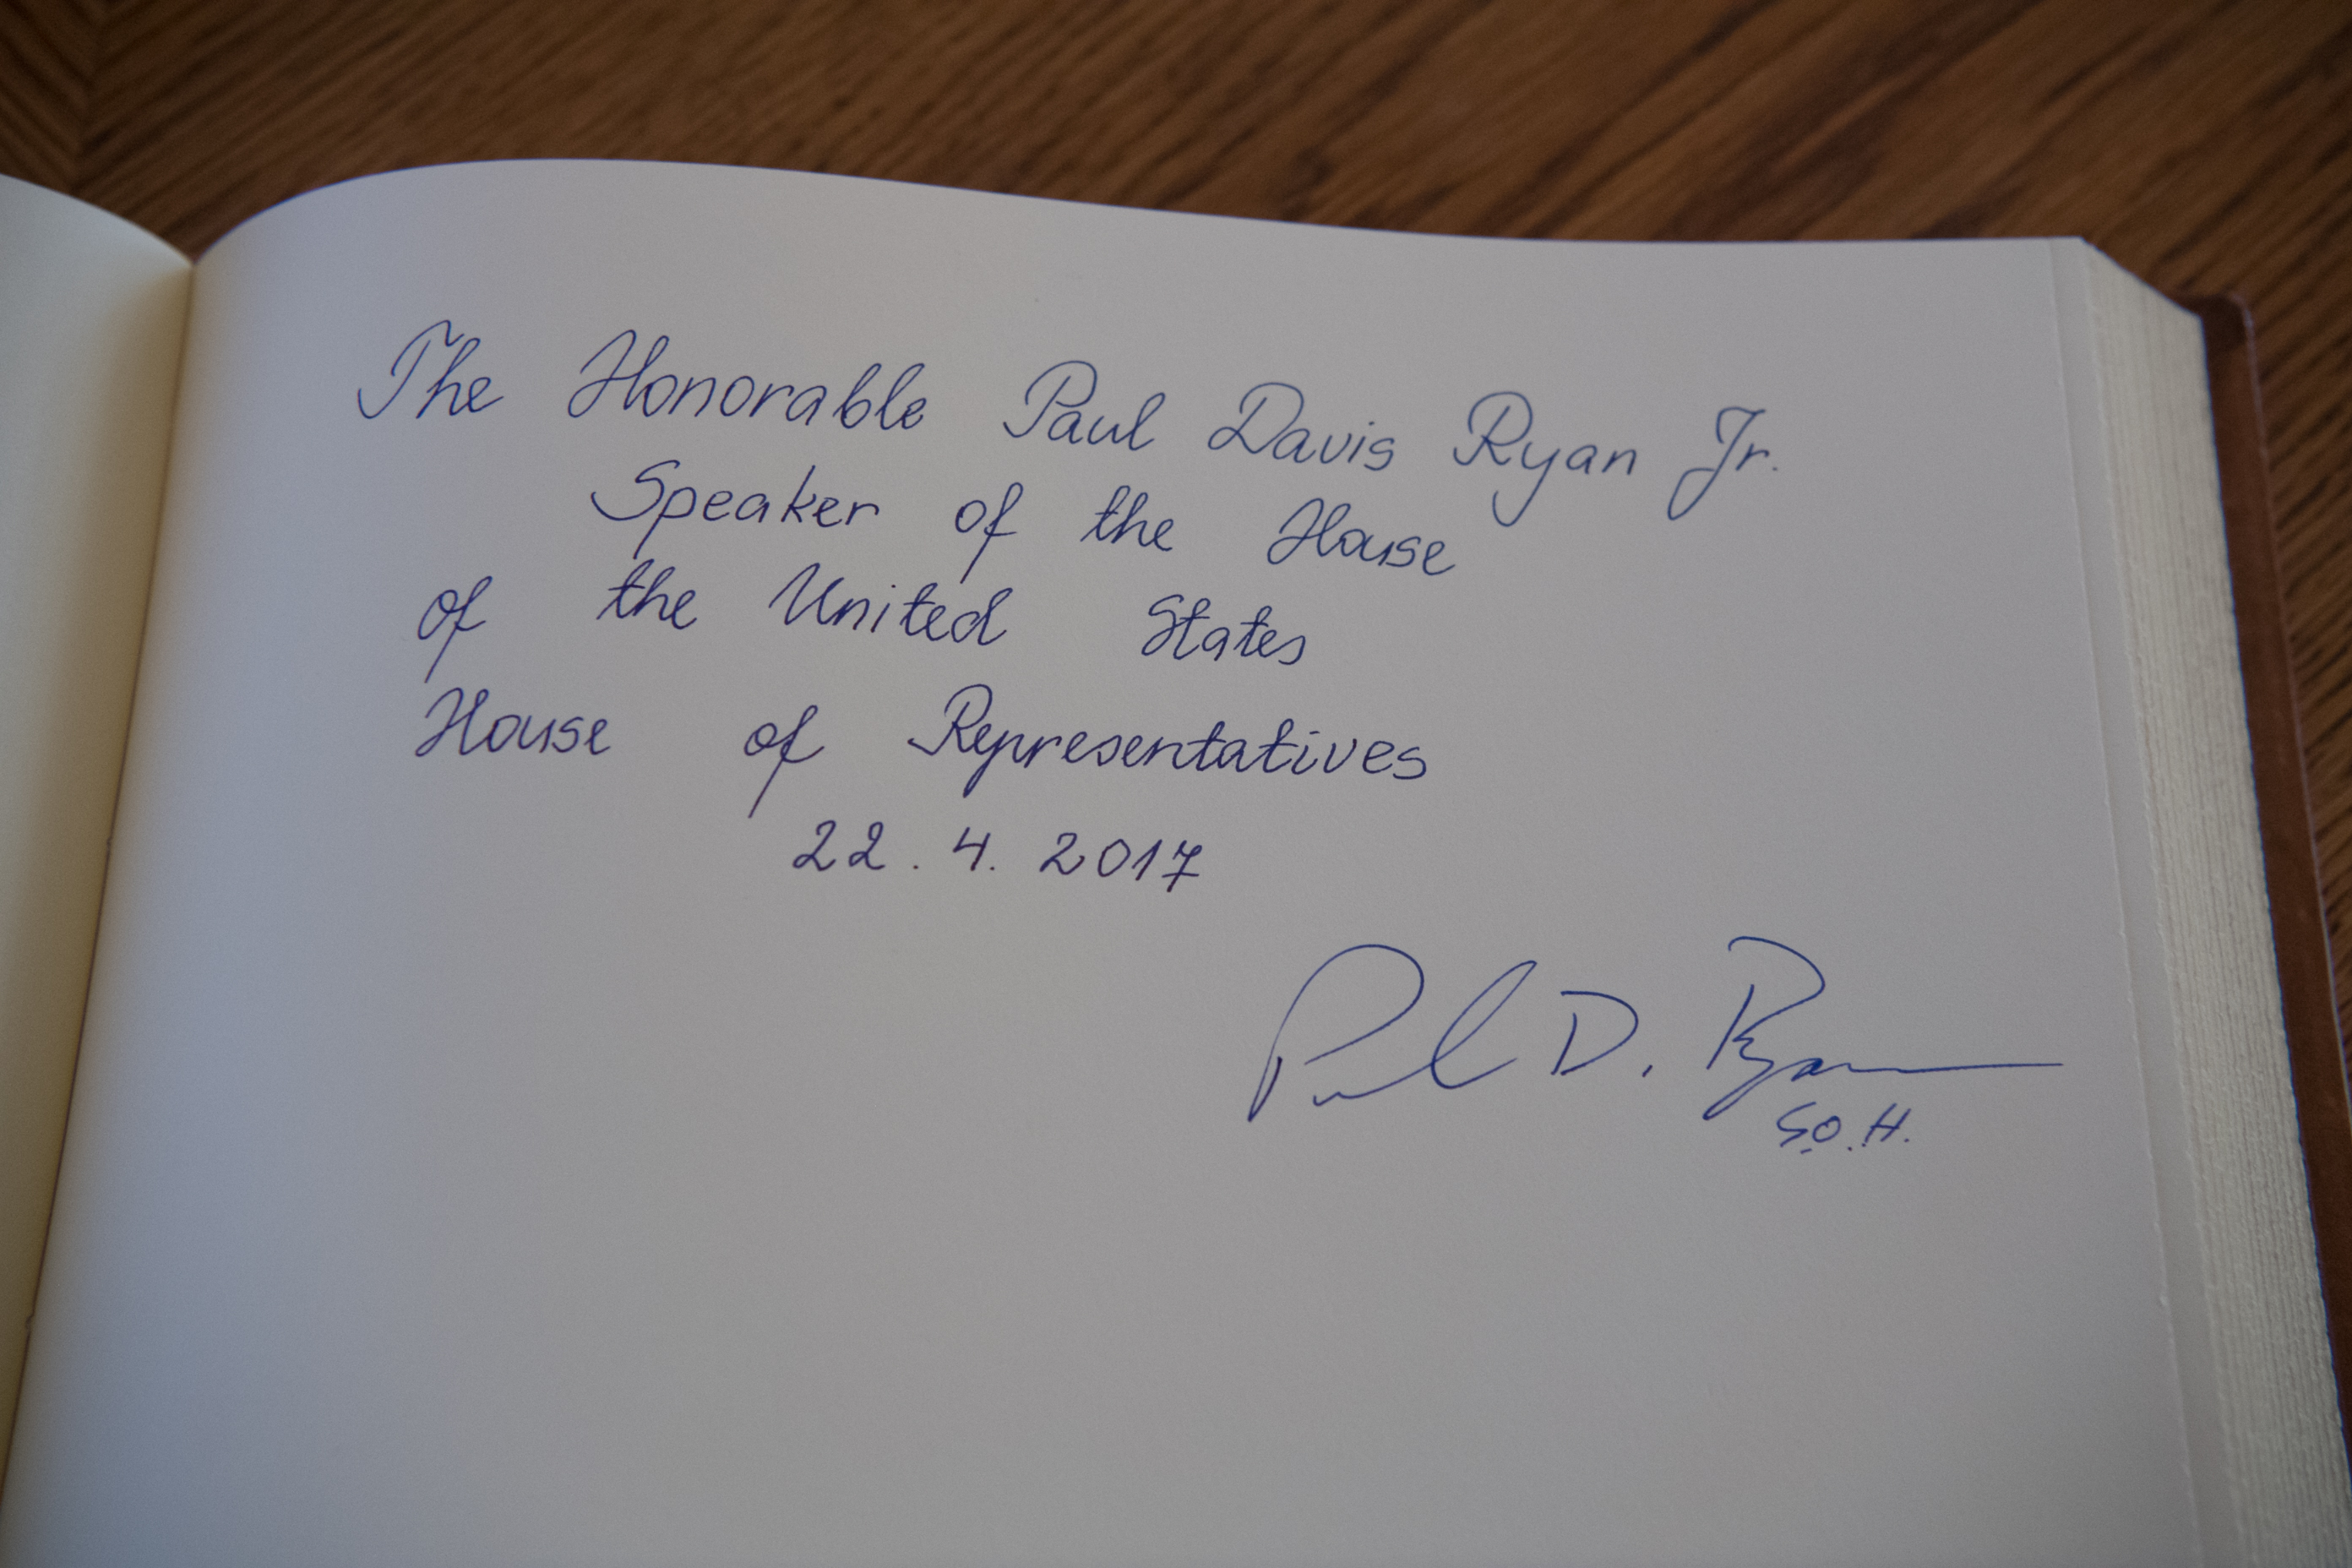 The Honorable Paul Davis Ryan Jr.
Speaker of the House
of the United States
House of Representatives
22.4.2017
Paul D. Ryan
S.O.H.